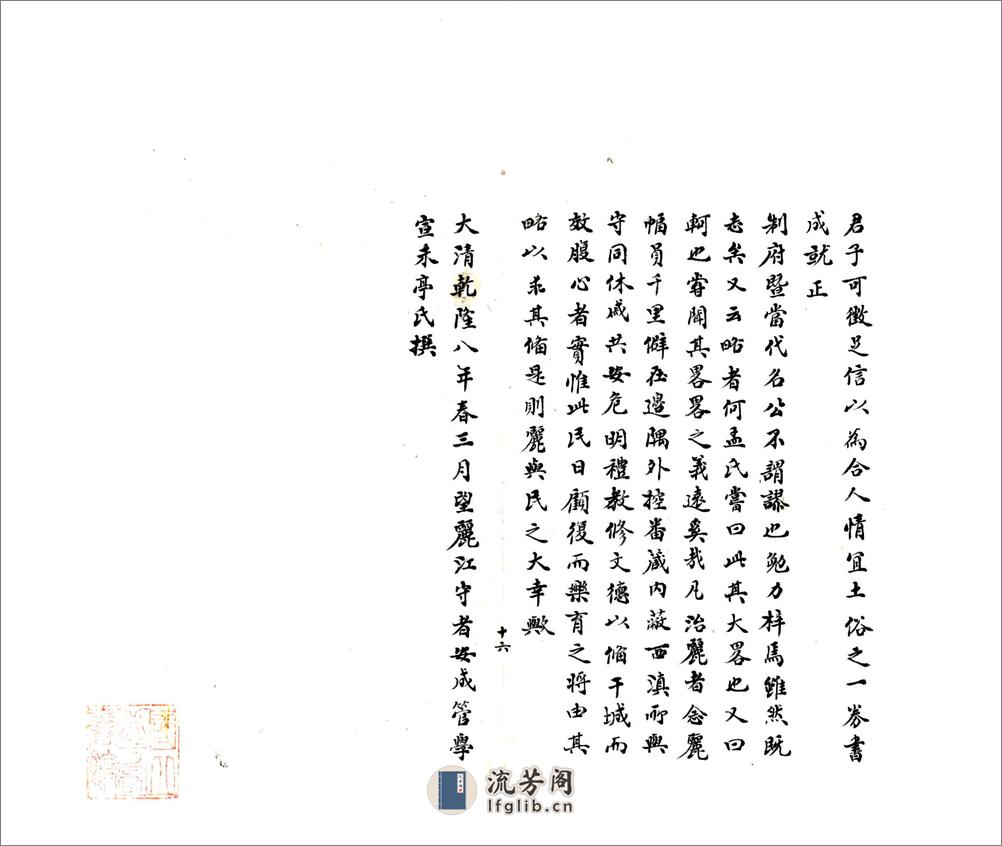 君子可徵足信以為合人情宜土俗之一券書
成就正
制府暨當代名公不謂謬也勉力梓焉雖然既
志矣又云略者何孟氏嘗曰此其大畧也又曰
軻也嘗聞其畧畧之義遠矣哉凡治麗者念麗
幅員千里僻在邊隅外控番藏内蔽西滇所與
守同休戚共安危明禮教修文德以備干城而
效腹心者實惟此民日顧復而樂育之將由其
略以求其備是則麗與民之大幸歟
十六
大清乾隆八年春三月望麗江守者安成管學
宣未亭氏撰
流芳阁
lfglib.cn